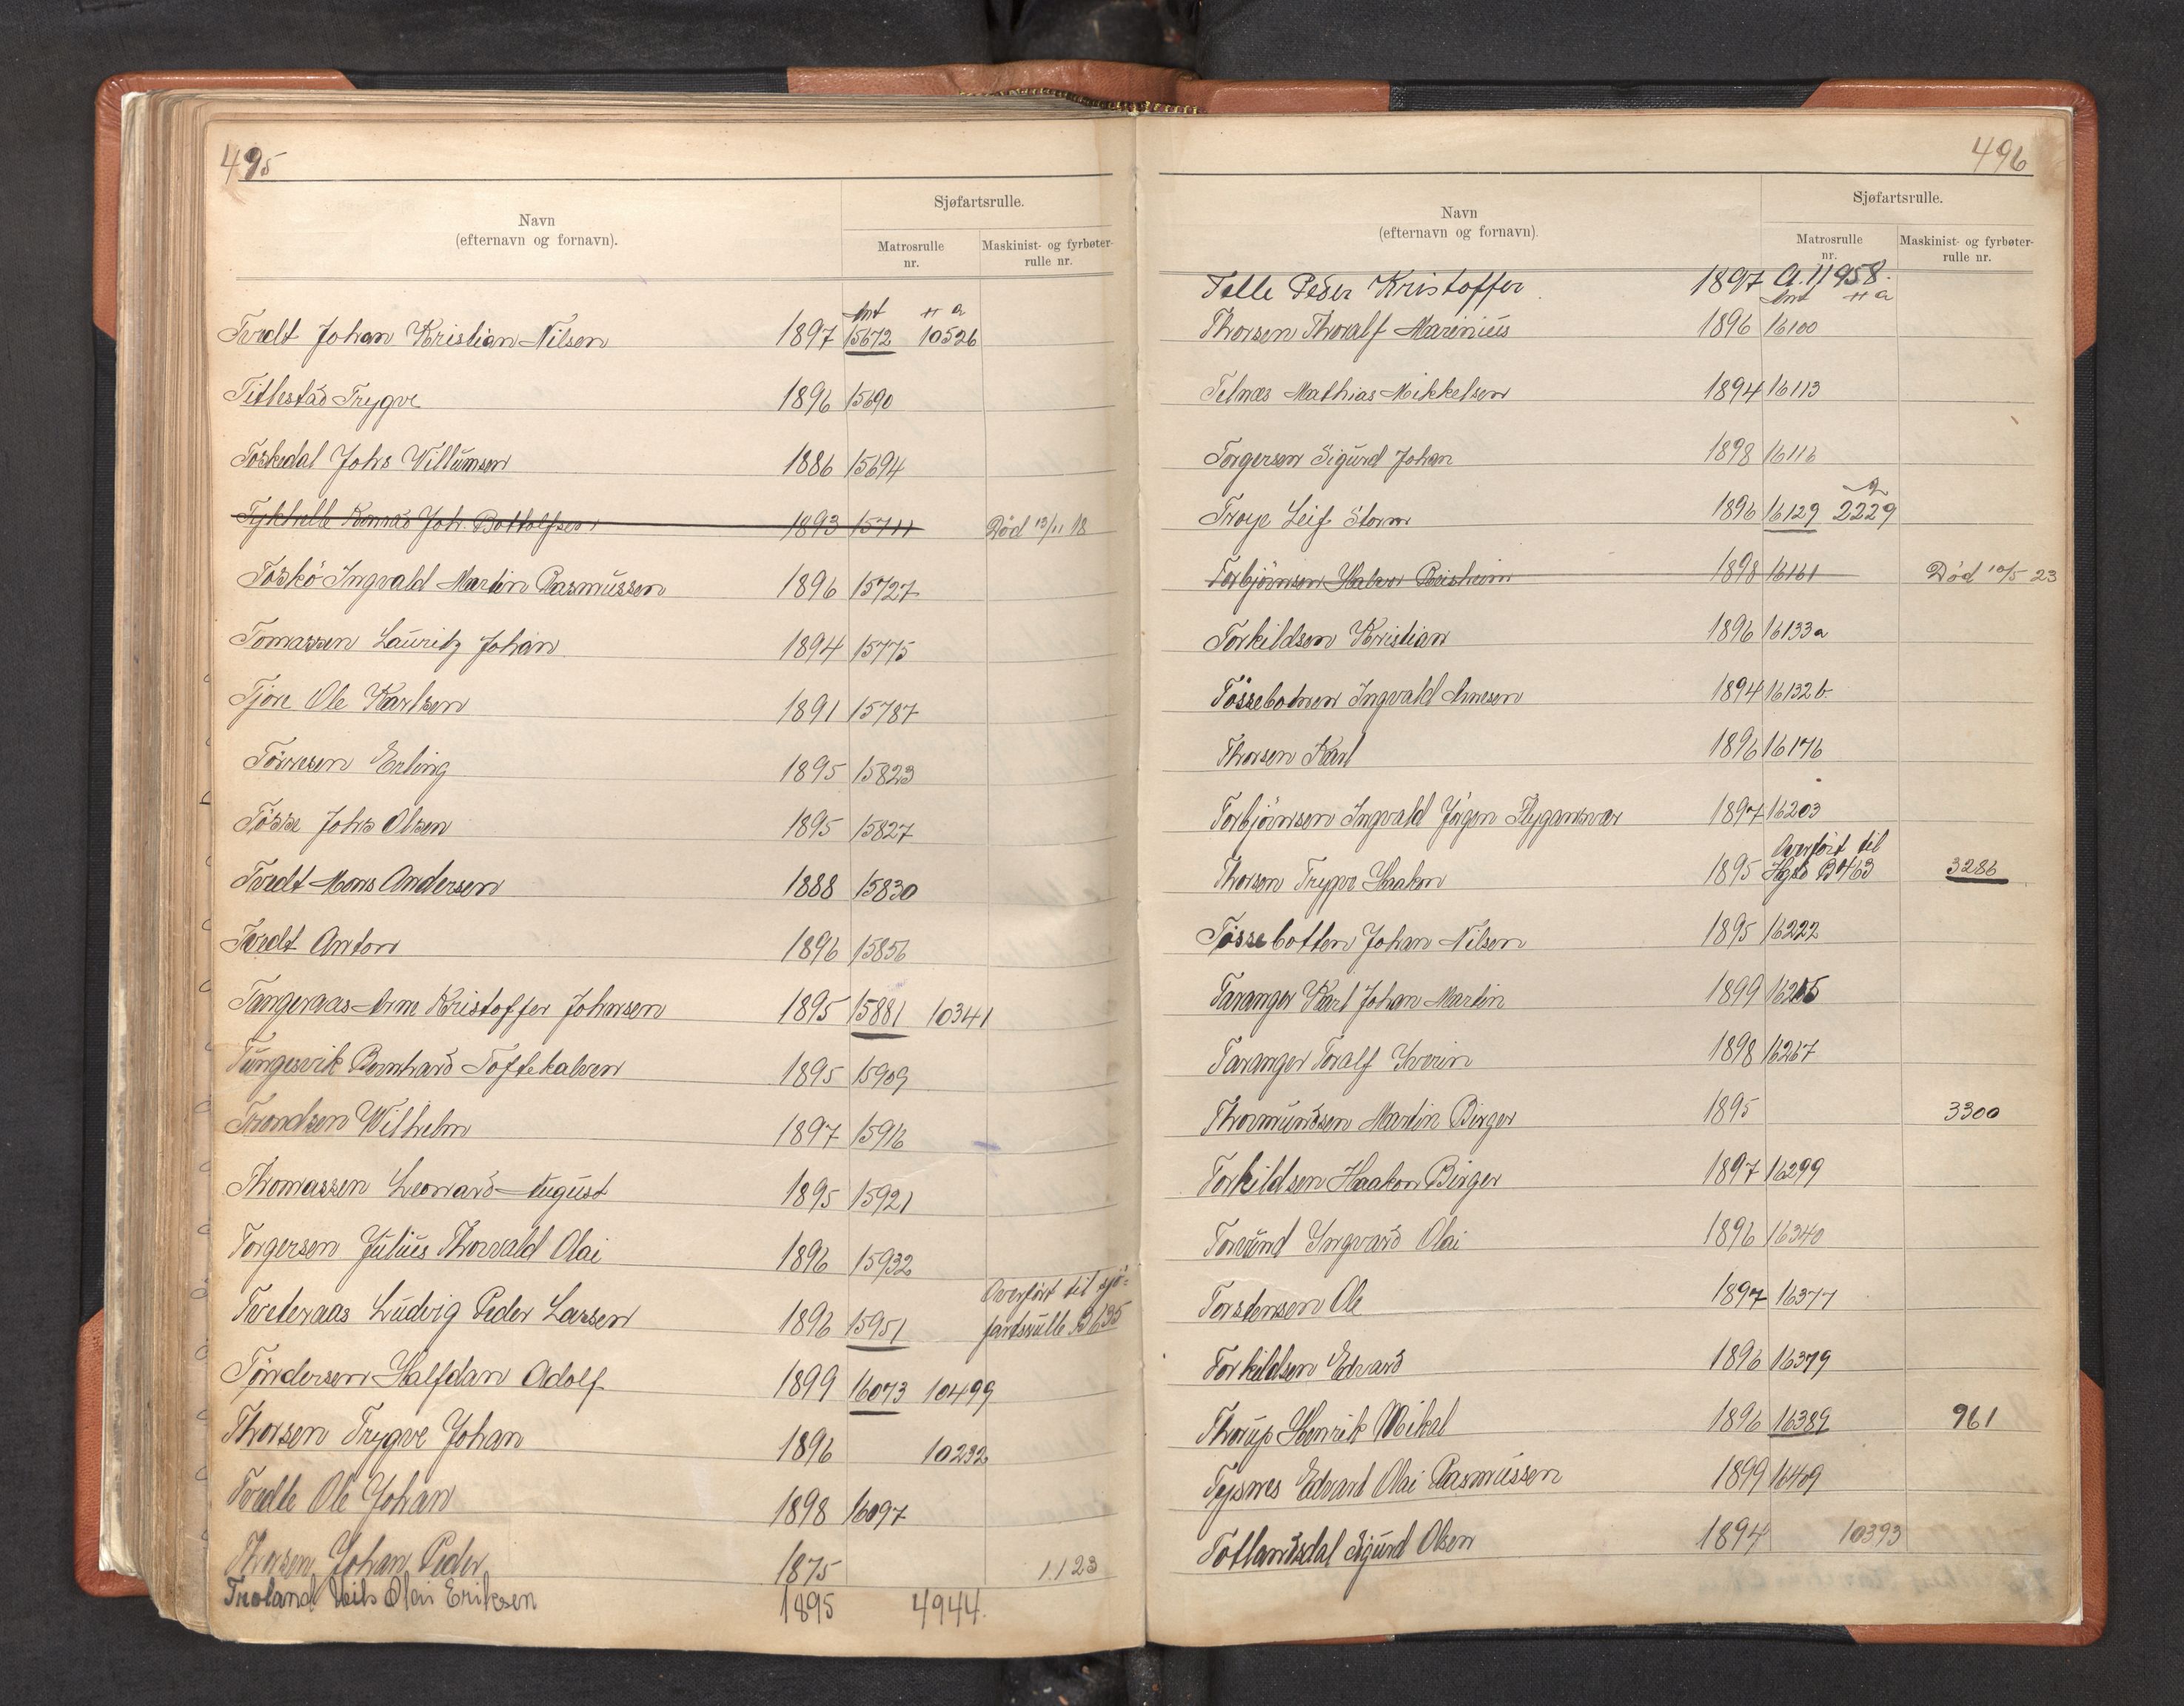 495
Navn
(efternavn og fornavn).
Sjøfartsrulle.
Matrosrulle
nr.
Maskinist- og fyrbøter-
rulle nr.
Ant # a
Tvedt Johan Kristian Nilsen 1897 15672 10526
Titlestad Trygve 1896 15690
Toskedal Johs Villumsen 1886 15694
Tyktelle Konrad Joh. Bottolfsen 1893 15711 Død 13/11 18
Toskö Ingvald Martin Rasmussen 1896 15727
Tomassen Lauritz Johan 1894 15775
Tjore Ole Karlsen 1891 15787
Törresen Erling 1895 15823
Tösse Johs Olsen 1895 15827
Tvedt Mons Andersen 1888 15830
Tvedt Anton 1896 15856
Tangeraas Arne Kristoffer Johnsen 1895 15881 10341
Tungesvik Bernhard Toftekalven 1895 15909
Trondsen Wilhelm 1897 15916
Thomassen Leonard August 1895 15921
Torgersen Julius Thorvald Olai 1896 15932
Overført til sjö-
Tveteraas Ludvig Peder Larsen 1896 15951 fartsrulle B 635
Töndersen Halfdan Adolf 1899 16073 10499
Thorsen Trygve Johan 1896 10232
Tvedte Ole Johan 1898 16097
Thorsen Johan Peder 1875 1123
Troland Nils Olai Eriksen 1895 4944.
496
Navn
(efternavn og fornavn).
Sjøfartsrulle.
Matrosrulle
nr.
Maskinist- og fyrbøter-
rulle nr.
Telle Peder Kristoffer 1897 A.11958.
Ant # a
Thorsen Thoralf Marinius 1896 16100
Telnæs Mathias Mikkelsen 1894 16113
Torgersen Sigurd Johan 1898 16116
a
Troye Leif Storm 1896 16129 2229
Torbjörnsen Halvor 1898 16161 Død 10/5 23
Torkildsen Kristian 1896 16133a
Tössebotnen Ingvald Arnesen 1894 16132 b.
Thorsen Karl 1896 16176
Torbjörnsen Ingvald Jörgen Flygansvær 1897 16203
Overfört til
Thorsen Trygve Haakon 1895 Hgsd B 463 3286
Tössebotten Johan Nilsen 1895 16222
Taranger Karl Johan Martin 1899 16265
Taranger Toralf Iverin 1898 16267
Thormundsen Martin Birger 1895 3300
Torkildsen Haakon Birger 1897 16299
Torvund Ingvard Olai 1896 16340
Torstensen Ole 1897 16377
Torkildsen Edvard 1896 16379
Thorup Henrik Mikal 1896 16389 961
Tysnes Edvard Olai Rasmussen 1899 16409
Totlandsdal Sigurd Olsen 1894 10393